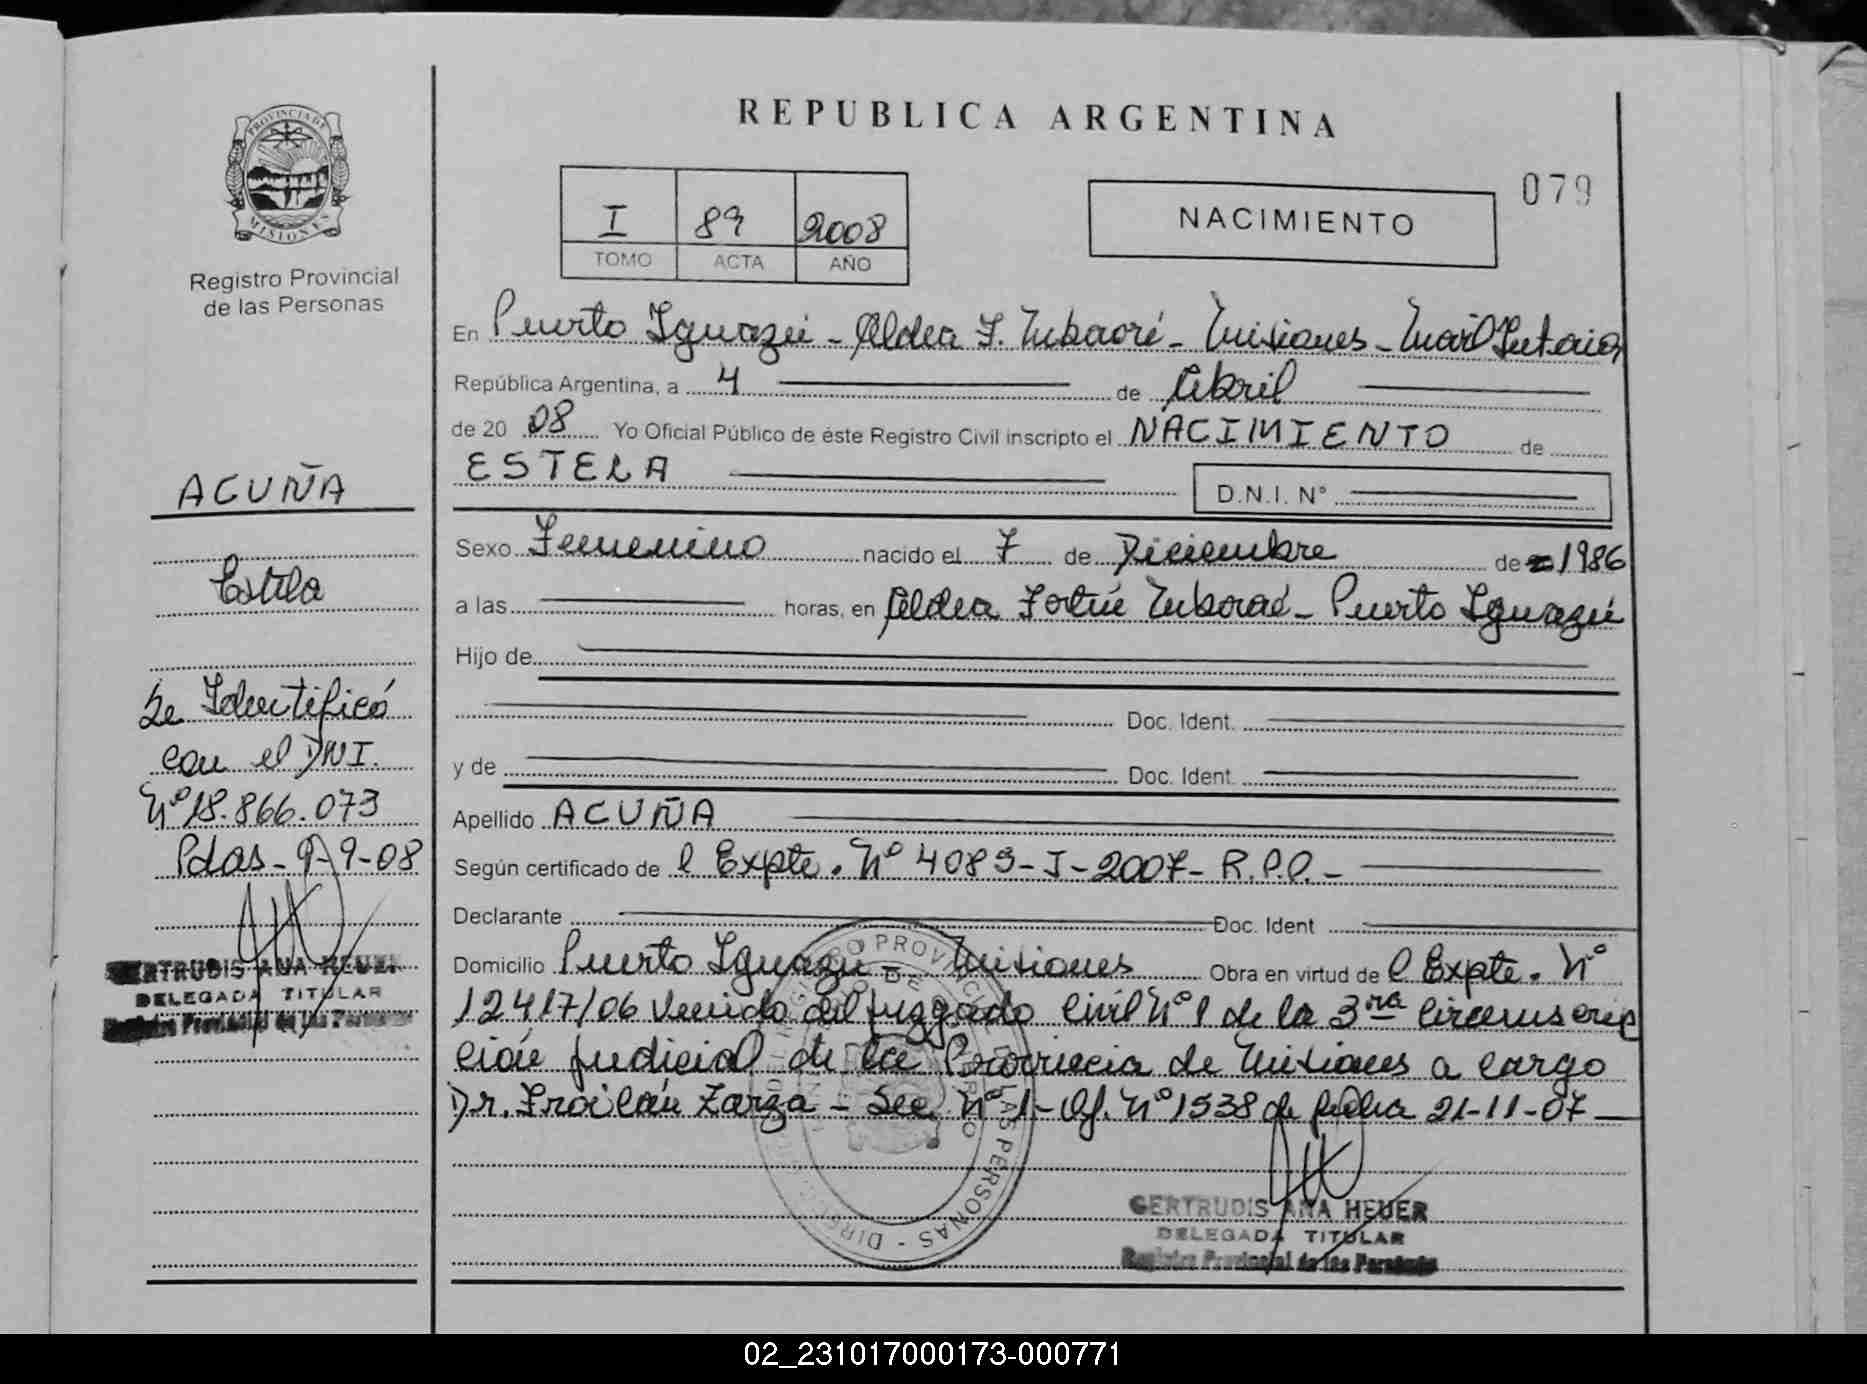 PROVINCIA DE
MISIONES
Registro Provincial
de las Personas
ACUÑA
Estela
Se Identificó
con el DNI.
Nº 18.866.073
Pdas - 9-9-08
GERTRUDIS ANA HEUER
DELEGADA TITULAR
Registro Provincial de las Personas
REPUBLICA ARGENTINA
079
I 89 2008
TOMO ACTA AÑO
NACIMIENTO
En Puerto Iguazú - Aldea F. Mbororé - Misiones -
República Argentina, a 4 de Abril
de 20 08 Yo Oficial Público de éste Registro Civil inscripto el NACIMIENTO de
ESTELA D.N.I. N°
Sexo Femenino nacido el 7 de Diciembre de 1986
a las horas, en Aldea Fortín Mbororé - Puerto Iguazú
Hijo de
Doc. Ident.
y de Doc. Ident.
Apellido ACUÑA
Según certificado de l Expte. Nº 4083-I-2007- R.P.P. -
Declarante Doc. Ident
Domicilio Puerto Iguazú - Misiones Obra en virtud de l Expte. Nº
12417/06 venido del Juzgado Civil Nº 1 de la 3ra Circunscrip
ción Judicial de la Provincia de Misiones a cargo
Dr. Froilán Zarza - Sec Nº 1 - Of. Nº 1538 de fecha 21-11-07
GERTRUDIS ANA HEUER
DELEGADA TITULAR
Registro Provincial de las Personas
02_231017000173-000771